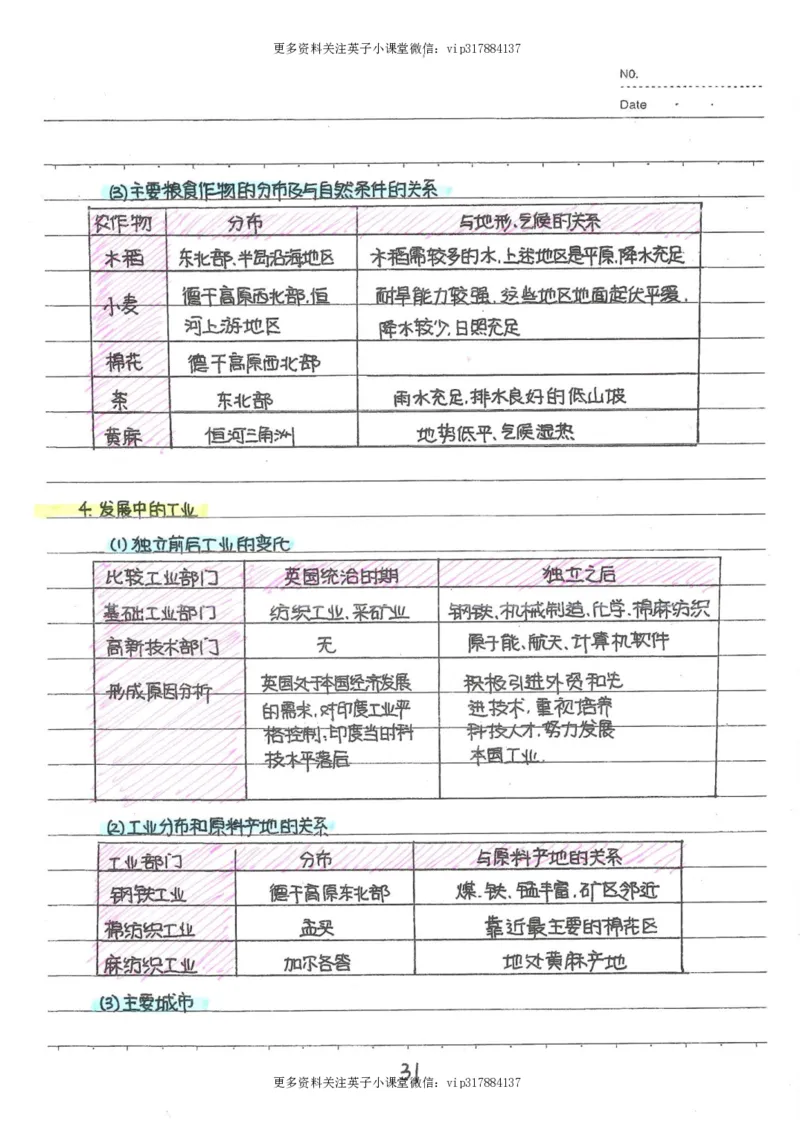 更多资料关注英子小课堂微信：vip317884137
NO.
Date
(3)主要粮食作物的分布及与自然条件的关系
农作物 分布 与地形、气候的关系
水稻 东北部、半岛沿海地区 水稻需较多的水,上述地区是平原,降水充足
小麦 德干高原西北部,恒 耐旱能力较强,这些地区地面起伏平缓,
河上游地区 降水较少,日照充足
棉花 德干高原西北部
茶 东北部 雨水充足,排水良好的低山坡
黄麻 恒河三角洲 地势低平、气候湿热
4. 发展中的工业
(1)独立前后工业的变化
比较工业部门 英国统治时期 独立之后
基础工业部门 纺织工业、采矿业 钢铁、机械制造、化学、棉麻纺织
高新技术部门 无 原子能、航天、计算机软件
形成原因分析 英国处于本国经济发展 积极引进外资和先
的需求,对印度工业严 进技术,重视培养
格控制;印度当时科 科技人才,努力发展
技水平落后 本国工业.
(2)工业分布和原料产地的关系
工业部门 分布 与原料产地的关系
钢铁工业 德干高原东北部 煤、铁、锰丰富,矿区邻近
棉纺织工业 孟买 靠近最主要的棉花区
麻纺织工业 加尔各答 地处黄麻产地
(3)主要城市
31
更多资料关注英子小课堂微信：vip317884137